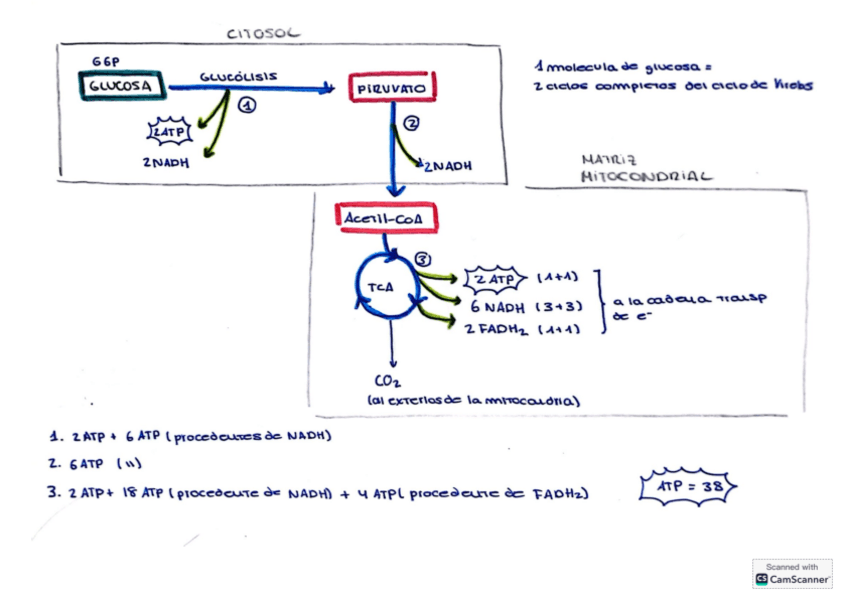 CITOSOL
G6P
GLUCOSA
GLUCÓLISIS
PIRUVATO
1
2ATP
2NADH
2
2NADH
1 molecula de glucosa =
2 ciclos completos del ciclo de Krebs
MATRIZ
MITOCONDRIAL
Acetil-CoA
3
TCA
2 ATP (1+1)
6 NADH (3+3)
2 FADH₂ (1+1)
a la cadena transp
de e⁻
CO₂
(al exterior de la mitocondria)
1. 2ATP + 6 ATP (procedentes de NADH)
2. 6ATP (")
3. 2 ATP + 18 ATP (procedente de NADH) + 4 ATP( procedente de FADH2)
ATP = 38
Scanned with
CS CamScanner